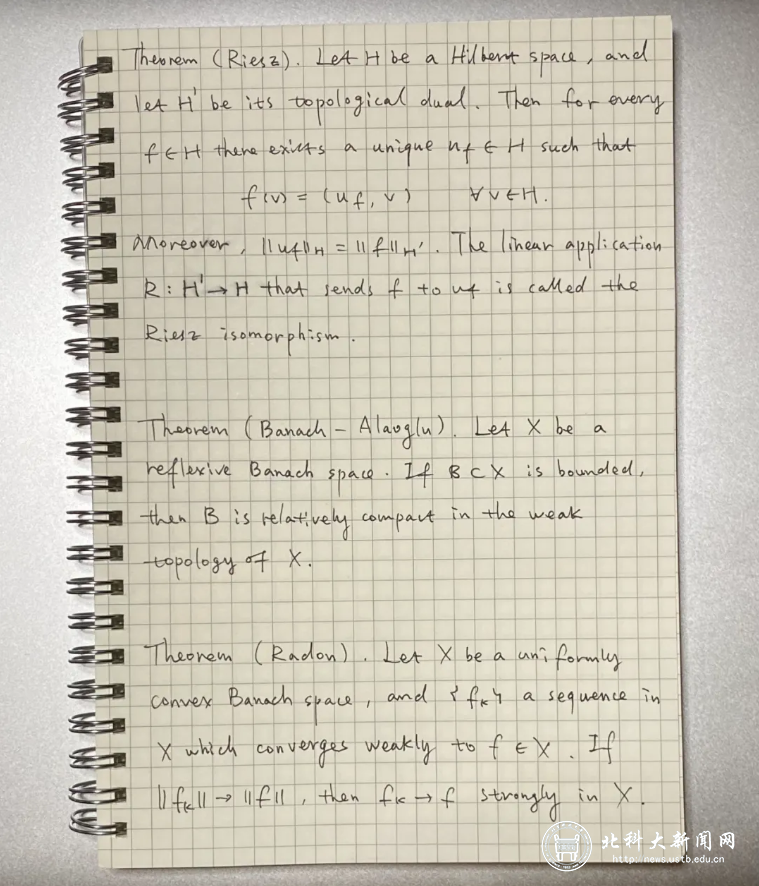 Theorem (Riesz). Let H be a Hilbert space, and
let H' be its topological dual. Then for every
f ∈ H there exists a unique u_f ∈ H such that
f(v) = (u_f, v) ∀v ∈ H.
Moreover, ||u_f||_H = ||f||_H'. The linear application
R : H' → H that sends f to u_f is called the
Riesz isomorphism.
Theorem (Banach - Alaoglu). Let X be a
reflexive Banach space. If B ⊂ X is bounded,
then B is relatively compact in the weak
topology of X.
Theorem (Radon). Let X be a uniformly
convex Banach space, and {f_k} a sequence in
X which converges weakly to f ∈ X. If
||f_k|| → ||f||, then f_k → f strongly in X.
北科大新闻网
http://news.ustb.edu.cn